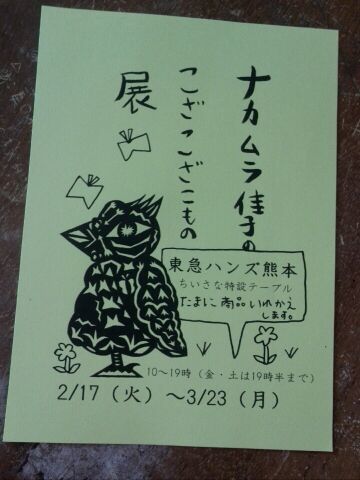 ナカムラ佳子の
こざこざこもの
展
東急ハンズ熊本
ちいさな特設テーブル
たまに商品いれかえ
します。
10〜19時（金・土は19時半まで）
2/17（火）〜3/23（月）